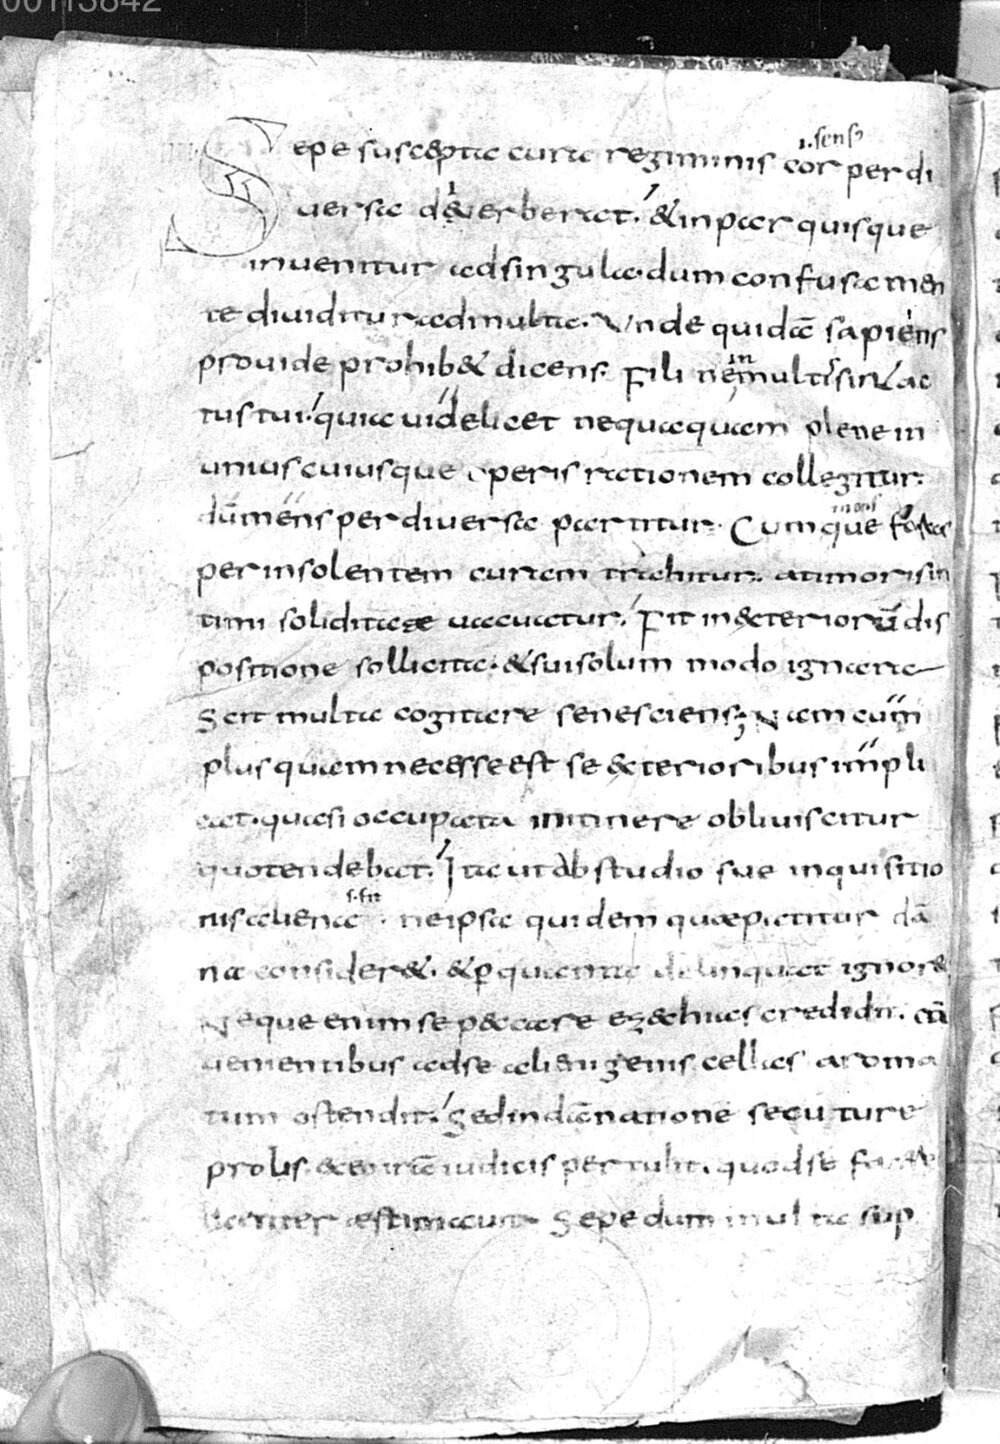 00113842
i. sens
Sepe suscepta cura regiminis cor perdi
uersa deuerberat. & inpar quisque
inuenitur adsingula. dum confusa men
te diuiditur admulta. Unde quidā sapiens
prouide prohib& dicens. Fili ne in multis sint ac
tus tui. quia uidelicet nequaquam plene in
uniuscuiusque operis rationem collegitur.
dum mens perdiuersa partitur. Cumque foras
mens
per insolentem curam trahitur. atimoris in
timi soliditate uacuatur. Fit in&teriorū dis
positione sollicita. & sui solum modo ignara
Scit multa cogitare se nesciens; Nam cum
plus quam necesse est se &terioribus impli
cat. quasi occupata initinere obliuiscitur
quo tendebat. Ita ut ab studio sue inquisitio
s. sit
nis aliena. ne ipsa quidem quae patitur dā
na consider&. &ꝑ quanta delinquat ignor&
Neque enim se peccare ez&hias credidit. cū
uenientibus adse alienigenis cellas aroma
tum ostendit. Sed in dānatione secuture
prolis. &eo irā iudicis pertulit. quod se
 estimauit Sepe dum multa sup